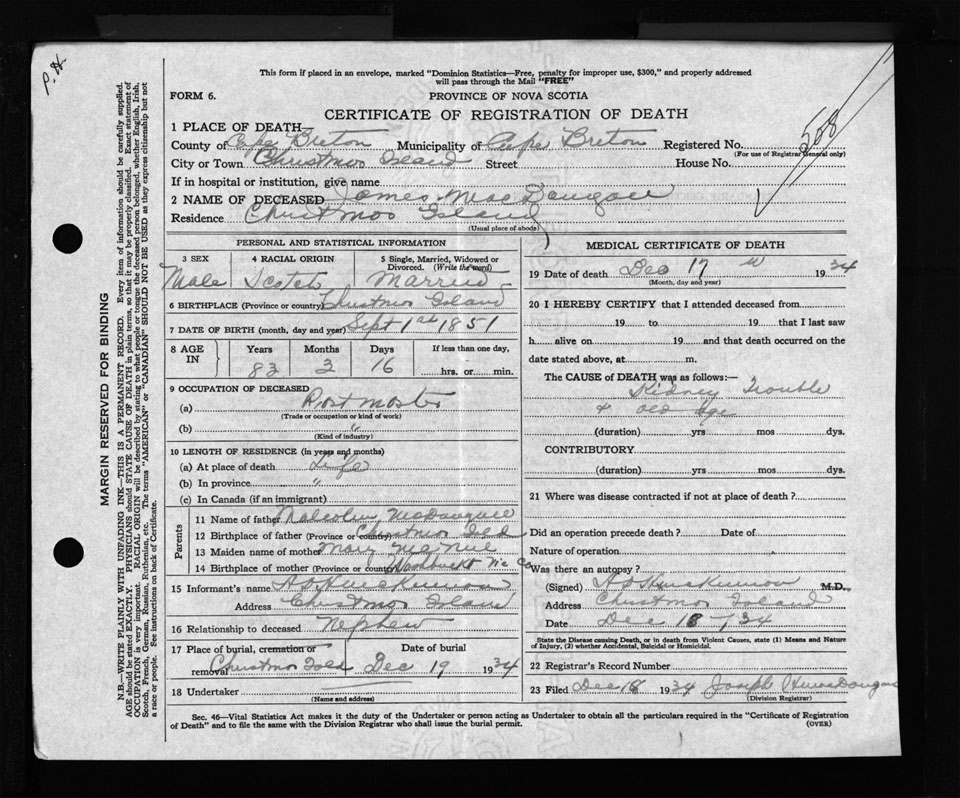 P.H.
This form if placed in an envelope, marked "Dominion Statistics—Free, penalty for improper use, $300," and properly addressed
will pass through the Mail "FREE"
FORM 6. PROVINCE OF NOVA SCOTIA
CERTIFICATE OF REGISTRATION OF DEATH
508
1 PLACE OF DEATH—
County of Cape Breton Municipality of Cape Breton Registered No.
(For use of Registrar General only)
City or Town Christmas Island Street House No.
If in hospital or institution, give name
2 NAME OF DECEASED James MacDougall
Residence Christmas Island
(Usual place of abode)
PERSONAL AND STATISTICAL INFORMATION
3 SEX 4 RACIAL ORIGIN 5 Single, Married, Widowed or
Divorced. (Write the word)
Male Scotch Married
6 BIRTHPLACE (Province or country) Christmas Island
7 DATE OF BIRTH (month, day and year) Sept 1st 1851
8 AGE IN Years Months Days If less than one day,
83 3 16 hrs. or min.
9 OCCUPATION OF DECEASED
(a) Postmaster
(Trade or occupation or kind of work)
(b) "
(Kind of industry)
10 LENGTH OF RESIDENCE (in years and months)
(a) At place of death Life
(b) In province "
(c) In Canada (if an immigrant)
Parents
11 Name of father Malcolm McDougall
12 Birthplace of father (Province or country) Christmas Isld
13 Maiden name of mother Mary McNeil
14 Birthplace of mother (Province or country) Washabuckt Vic Co
15 Informant's name
Address Christmas Island
16 Relationship to deceased Nephew
17 Place of burial, cremation or
removal Date of burial
Christmas Isld Dec 19 1934
18 Undertaker
(Name and address)
MEDICAL CERTIFICATE OF DEATH
19 Date of death Dec 17 1934
(Month, day and year)
20 I HEREBY CERTIFY that I attended deceased from
19 to 19 that I last saw
h alive on 19 and that death occurred on the
date stated above, at m.
The CAUSE of DEATH was as follows:—
Kidney Trouble
& old age
(duration) yrs mos dys.
CONTRIBUTORY
(duration) yrs mos dys.
21 Where was disease contracted if not at place of death?
Did an operation precede death? Date of
Nature of operation
Was there an autopsy?
(Signed) M.D.
Address Christmas Island
Date Dec 18-/34
State the Disease causing Death, or in death from Violent Causes, state (1) Means and Nature
of Injury, (2) whether Accidental, Suicidal or Homicidal.
22 Registrar's Record Number
23 Filed Dec 18 1934 Joseph MacDougall
(Division Registrar)
Sec. 46—Vital Statistics Act makes it the duty of the Undertaker or person acting as Undertaker to obtain all the particulars required in the "Certificate of Registration
of Death" and to file the same with the Division Registrar who shall issue the burial permit. (OVER)
MARGIN RESERVED FOR BINDING
N.B.—WRITE PLAINLY WITH UNFADING INK—THIS IS A PERMANENT RECORD. Every item of information should be carefully supplied.
AGE should be stated EXACTLY. PHYSICIANS should STATE CAUSE OF DEATH in plain terms, so that it may be properly classified. Exact statement of
OCCUPATION is very important. RACIAL ORIGIN will be described by stating to what people or tongue the deceased person belonged, whether English, Irish,
Scotch, French, German, Russian, Ruthenian, etc. The terms "AMERICAN" or "CANADIAN" SHOULD NOT BE USED as they express citizenship but not
a race or people. See instructions on back of Certificate.